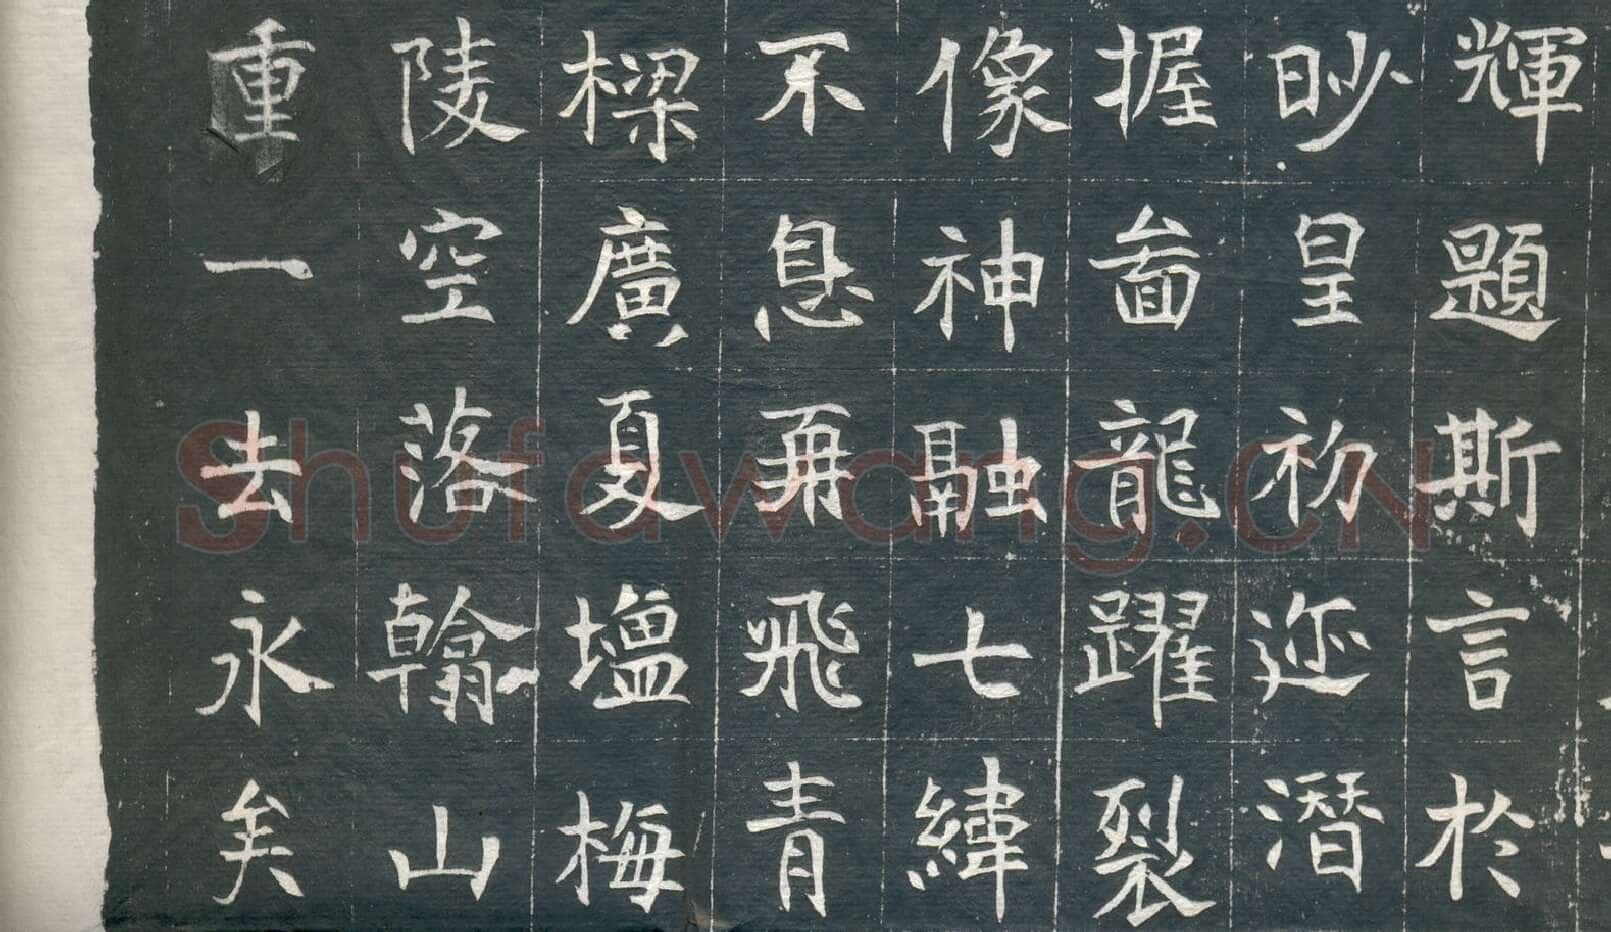 輝題斯言於
眇皇初迩潛
握啚龍躍裂
像神融七緯
不息再飛青
樑廣夏塩梅
陵空落翰山
重一去永矣
Shufawang.CN